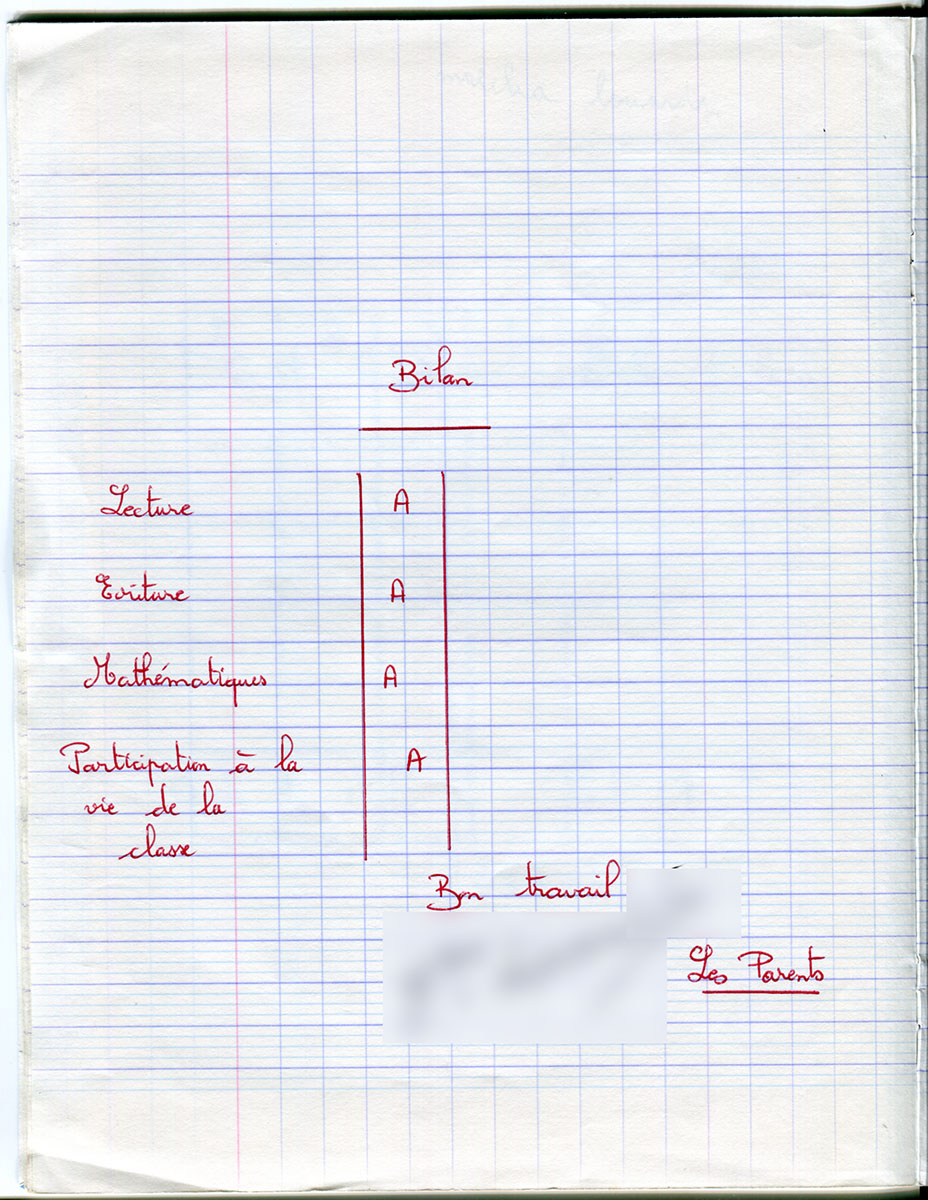 Bilan
Lecture A
Ecriture A
Mathématiques A
Participation à la A
vie de la
classe
Bon travail
Les Parents